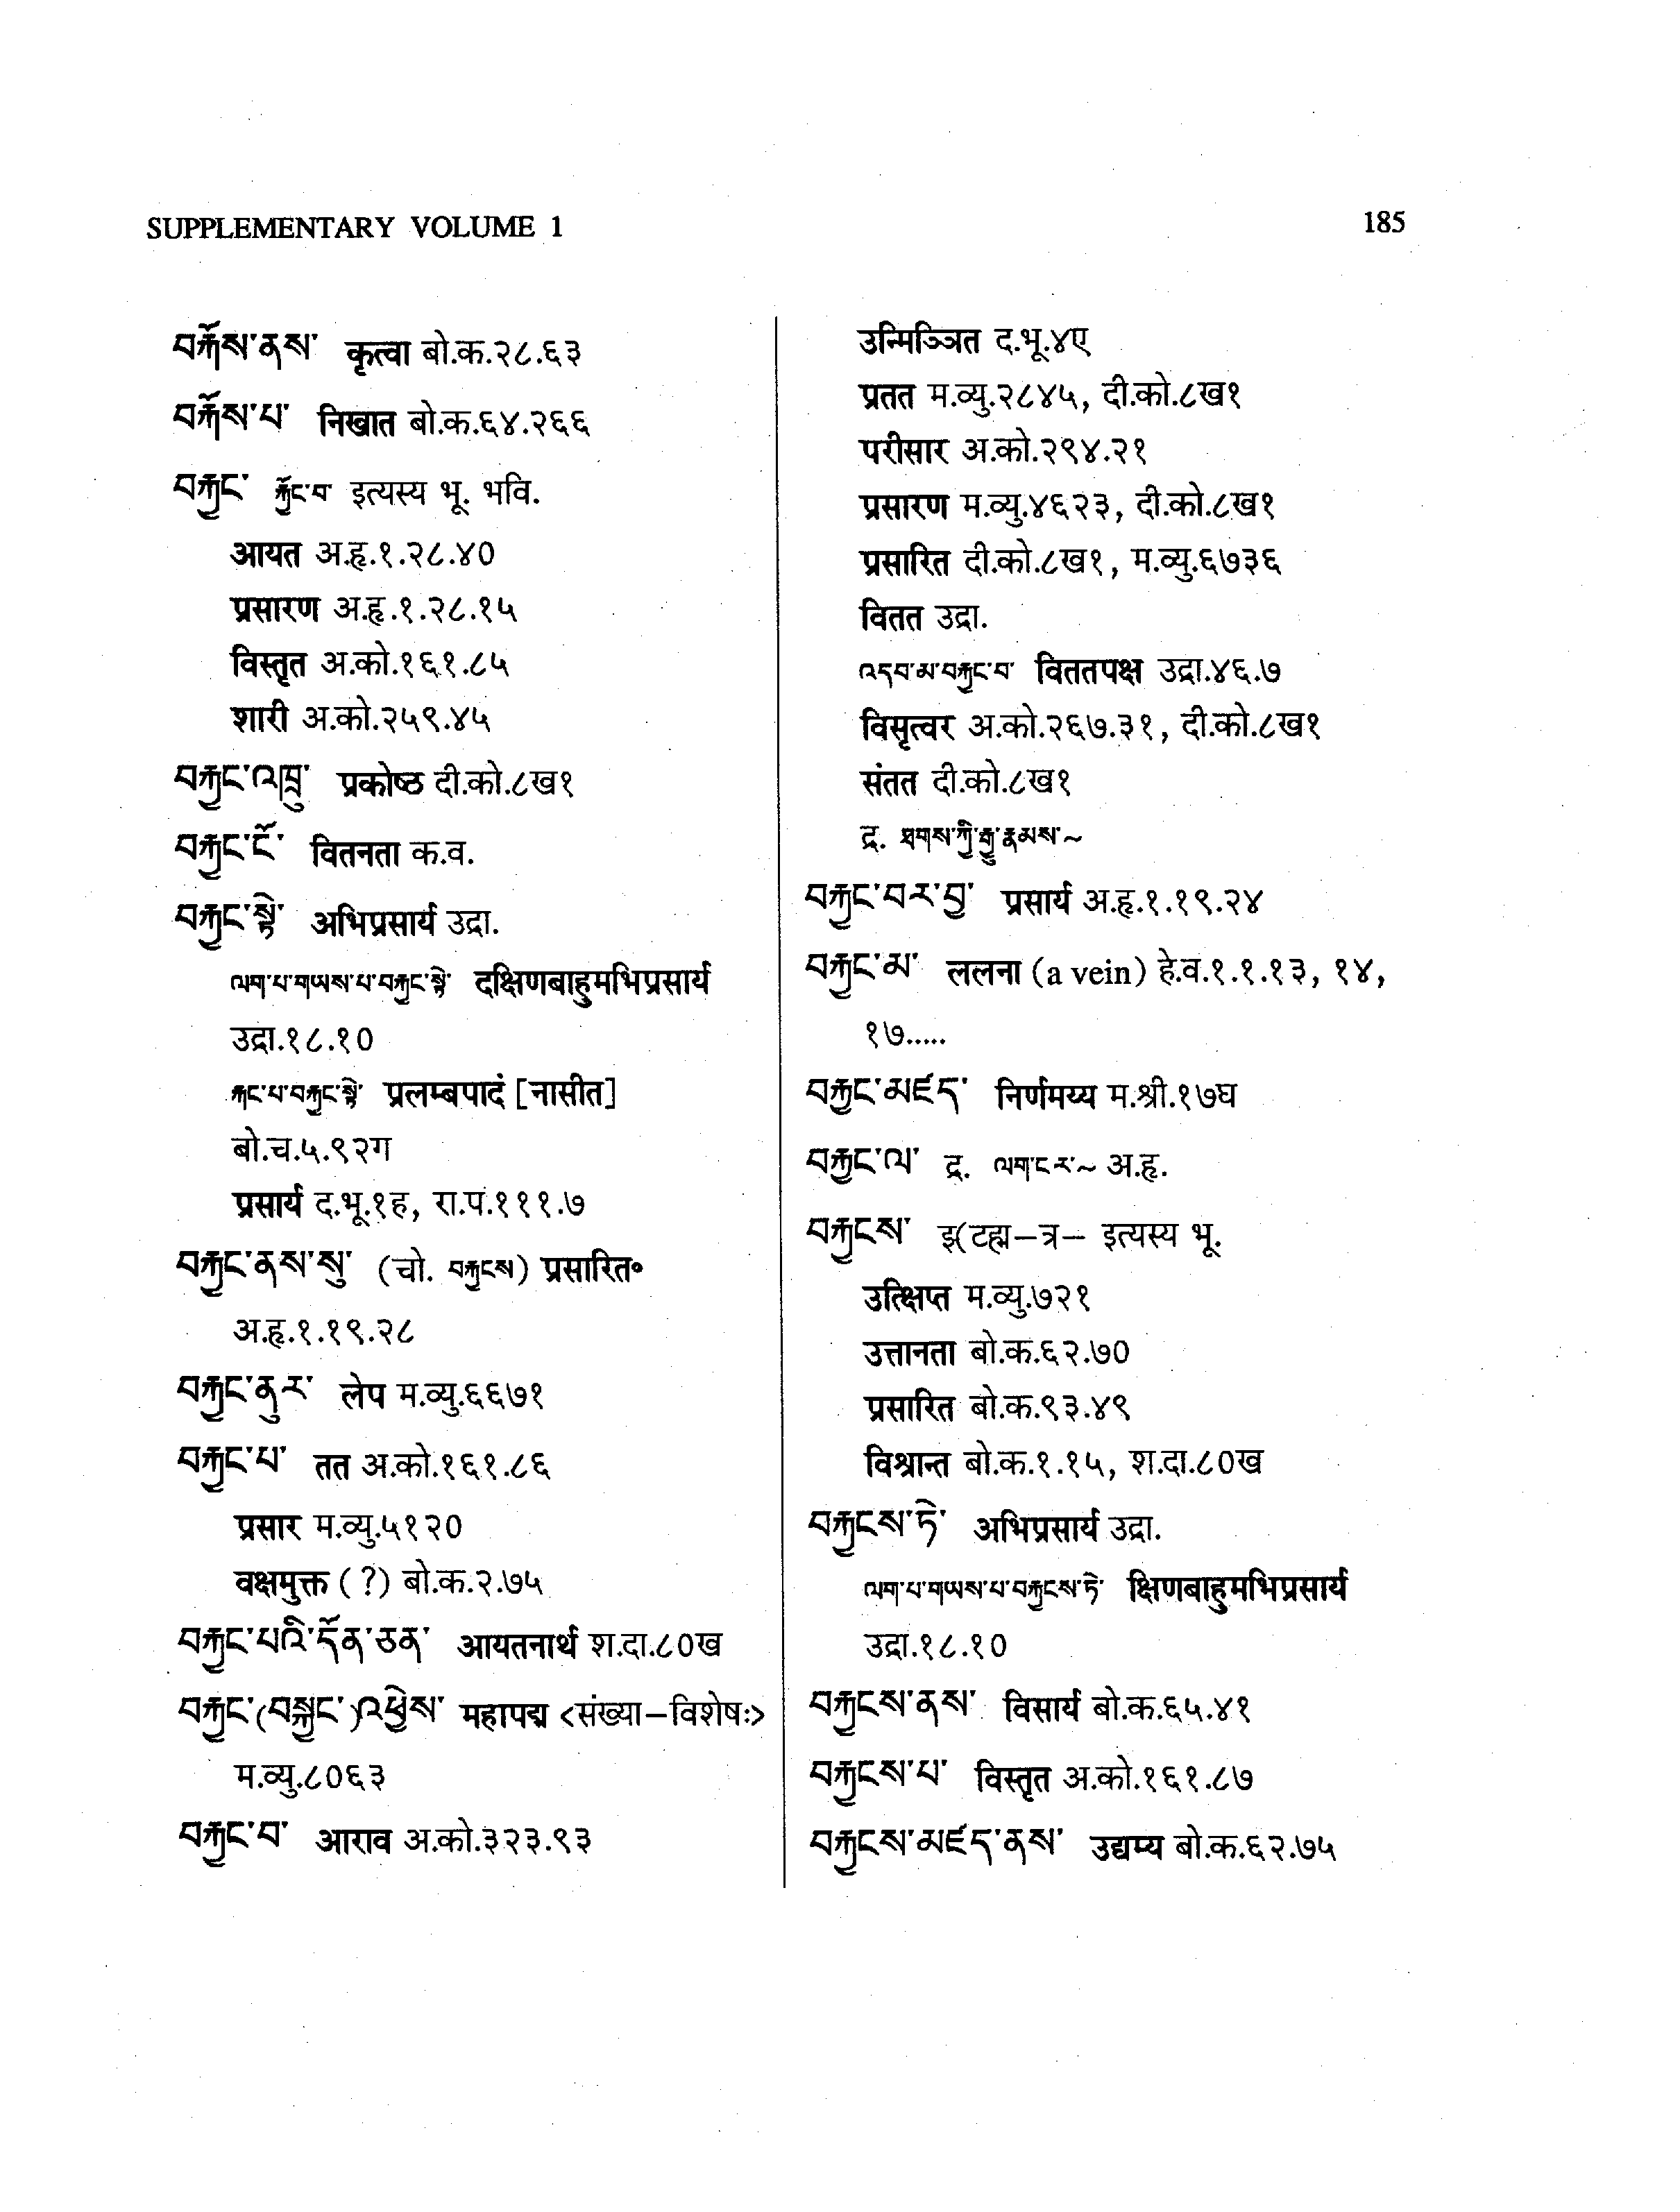 SUPPLEMENTARY VOLUME 1
185
བརྐོས་ནས་ कृत्वा बो.क.२८.६३
བརྐོས་པ་ निखात बो.क.६४.२६६
བརྐྱང་ རྐྱོང་བ་ इत्यस्य भू. भवि.
आयत अ.हृ.१.२८.४०
प्रसारण अ.हृ.१.२८.१५
विस्तृत अ.को.१६१.८५
शारी अ.को.२५९.४५
བརྐྱང་འཁྲུ་ प्रकोष्ठ दी.को.८ख१
བརྐྱང་ངོ་ वितनता क.व.
བརྐྱང་སྟེ་ अभिप्रसार्य उद्रा.
ལག་པ་གཡས་པ་བརྐྱང་སྟེ་ दक्षिणबाहुमभिप्रसार्य
उद्रा.१८.१०
རྐང་པ་བརྐྱང་སྟེ་ प्रलम्बपादं [नासीत]
बो.च.५.९२ग
प्रसार्य द.भू.१ह, रा.प.१११.७
བརྐྱང་ནས་སུ་ (चो. བརྐྱངས) प्रसारित॰
अ.हृ.१.१९.२८
བརྐྱང་ནུར་ लेप म.व्यु.६६७१
བརྐྱང་པ་ तत अ.को.१६१.८६
प्रसार म.व्यु.५१२०
वक्षमुक्त (?) बो.क.२.७५
བརྐྱང་པའི་དོན་ཅན་ आयतनार्थ श.दा.८०ख
བརྐྱང་(བསྐྱང་)འཕྱེས་ महापद्म <संख्या-विशेषः>
म.व्यु.८०६३
བརྐྱང་བ་ आराव अ.को.३२३.९३
उन्मिञ्जित द.भू.४ए
प्रतत म.व्यु.२८४५, दी.को.८ख१
परीसार अ.को.२९४.२१
प्रसारण म.व्यु.४६२३, दी.को.८ख१
प्रसारित दी.को.८ख१, म.व्यु.६७३६
वितत उद्रा.
འདབ་མ་བརྐྱང་བ་ विततपक्ष उद्रा.४६.७
विसृत्वर अ.को.२६७.३१, दी.को.८ख१
संतत दी.को.८ख१
द्र. ཐགས་ཀྱི་རྒྱུ་རྣམས་~
བརྐྱང་བར་བྱ་ प्रसार्य अ.हृ.१.१९.२४
བརྐྱང་མ་ ललना (a vein) हे.व.१.१.१३, १४,
१७.....
བརྐྱང་མཛད་ निर्णमय्य म.श्री.१७घ
བརྐྱང་ལ་ द्र. ལག་ངར་~ अ.हृ.
བརྐྱངས་ झ(टह्म-त्र- इत्यस्य भू.
उत्क्षिप्त म.व्यु.७२१
उत्तानता बो.क.६२.७०
प्रसारित बो.क.९३.४९
विश्रान्त बो.क.१.१५, श.दा.८०ख
བརྐྱངས་ཏེ་ अभिप्रसार्य उद्रा.
ལག་པ་གཡས་པ་བརྐྱངས་ཏེ་ क्षिणबाहुमभिप्रसार्य
उद्रा.१८.१०
བརྐྱངས་ནས་ विसार्य बो.क.६५.४१
བརྐྱངས་པ་ विस्तृत अ.को.१६१.८७
བརྐྱངས་མཛད་ནས་ उद्यम्य बो.क.६२.७५